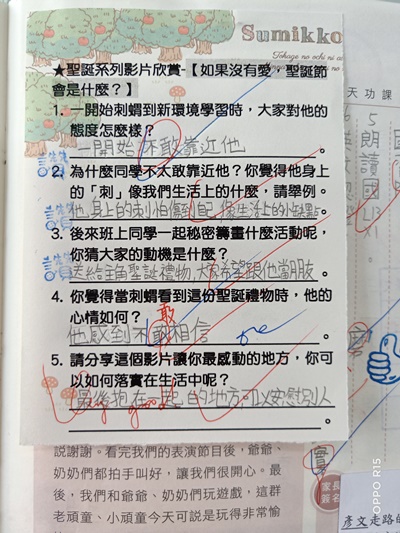 Sumikko
Tokage no ochi ni as
★聖誕系列影片欣賞-【如果沒有愛，聖誕節
會是什麼？】
1. 一開始刺蝟到新環境學習時，大家對他的
態度怎麼樣？
一開始不敢靠近他。
2. 為什麼同學不太敢靠近他？你覺得他身上
的「刺」像我們生活上的什麼，請舉例。
他身上的刺怕傷到自己,像生活上的小缺點。
3. 後來班上同學一起秘密籌畫什麼活動呢，
你猜大家的動機是什麼？
送給主角聖誕禮物,大家希望跟他當朋友。
4. 你覺得當刺蝟看到這份聖誕禮物時，他的
心情如何？
敢
他感到不相信。
5. 請分享這個影片讓你最感動的地方，你可
以如何落實在生活中呢？
最後抱在一起的地方可以安慰別人
。
天功課
5
朗
讀
國
L13
X1
家長
簽名
說謝謝。看完我們的表演節目後，爺爺、
奶奶們都拍手叫好，讓我們很開心。最
後，我們和爺爺、奶奶們玩遊戲，這群
老頑童、小頑童今天可說是玩得非常愉
彥文走路的
OPPO R15